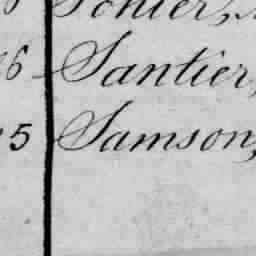 6 Santier,
5 Samson,